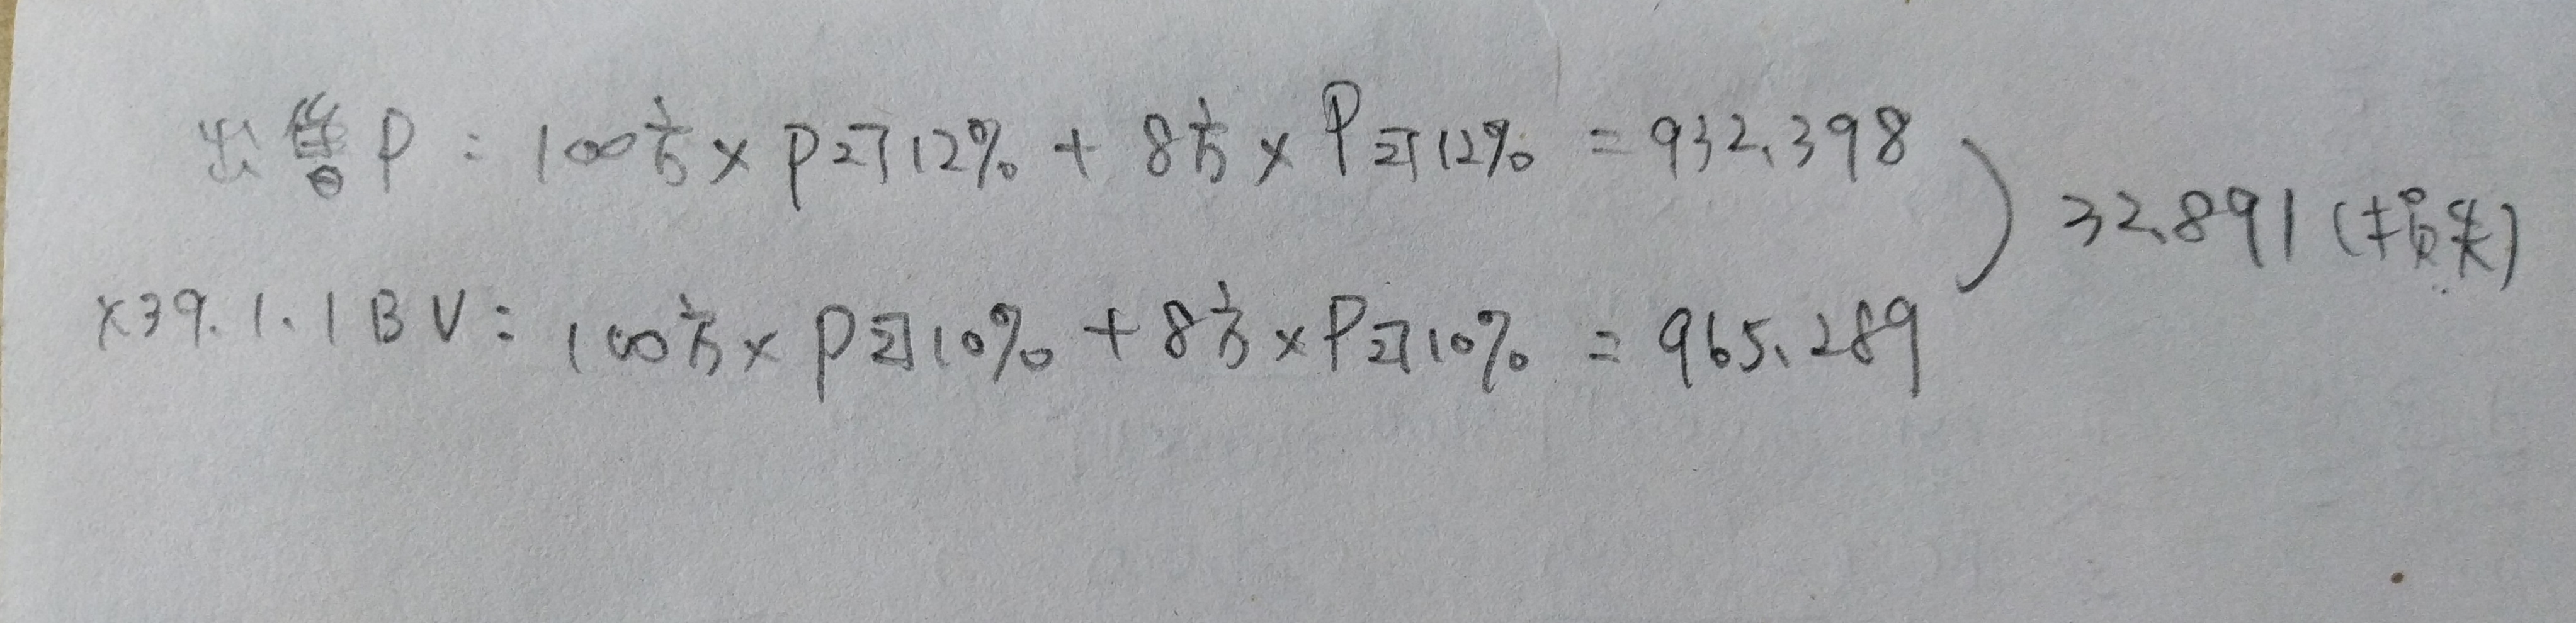 出售P：100万×P2┐12% + 8万×P2┐12% = 932,398
X39.1.1 BV：100万×P2┐10% + 8万×P2┐10% = 965,289
) 32,891 (损失)